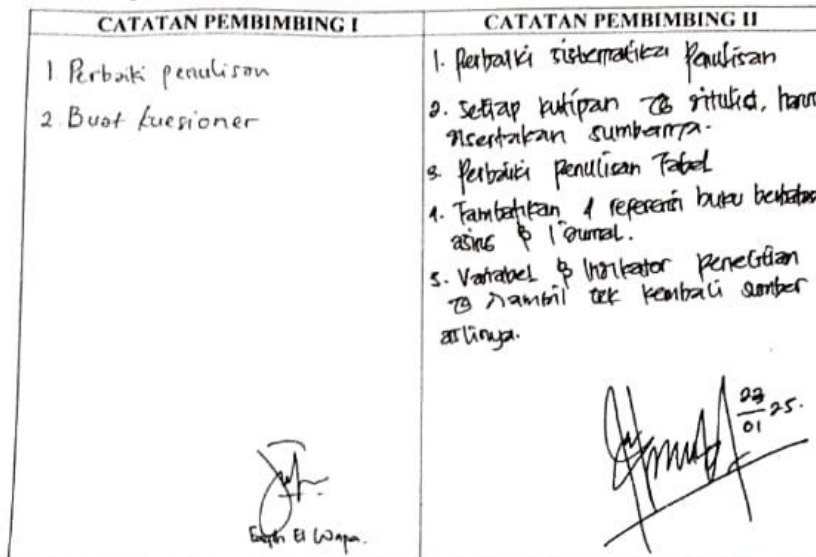 CATATAN PEMBIMBING I
1. Perbaiki penulisan
2. Buat kuesioner
CATATAN PEMBIMBING II
1. Perbaiki sistematika Penulisan
2. Setiap kutipan yg ditulis, harus
disertakan sumbernya.
3. Perbaiki Penulisan Tabel
4. Tambahkan 1 referensi buku berbahasa
asing & 1 Jurnal.
5. Variabel & Indikator Penelitian
yg diambil cek kembali sumber
aslinya.
23
01 25.